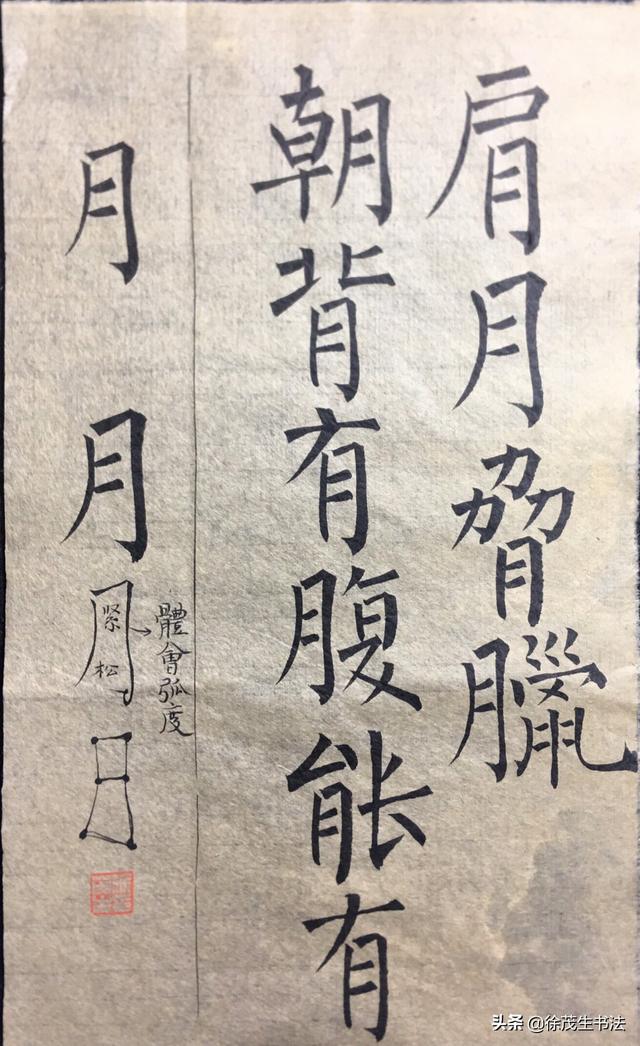 肩月脅臘
朝背有腹能有
月月
緊
松
體會弧度
头条 @徐茂生书法